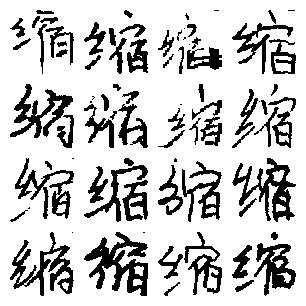 缩缩缩缩
缩缩缩缩
缩缩缩缩
缩缩缩缩